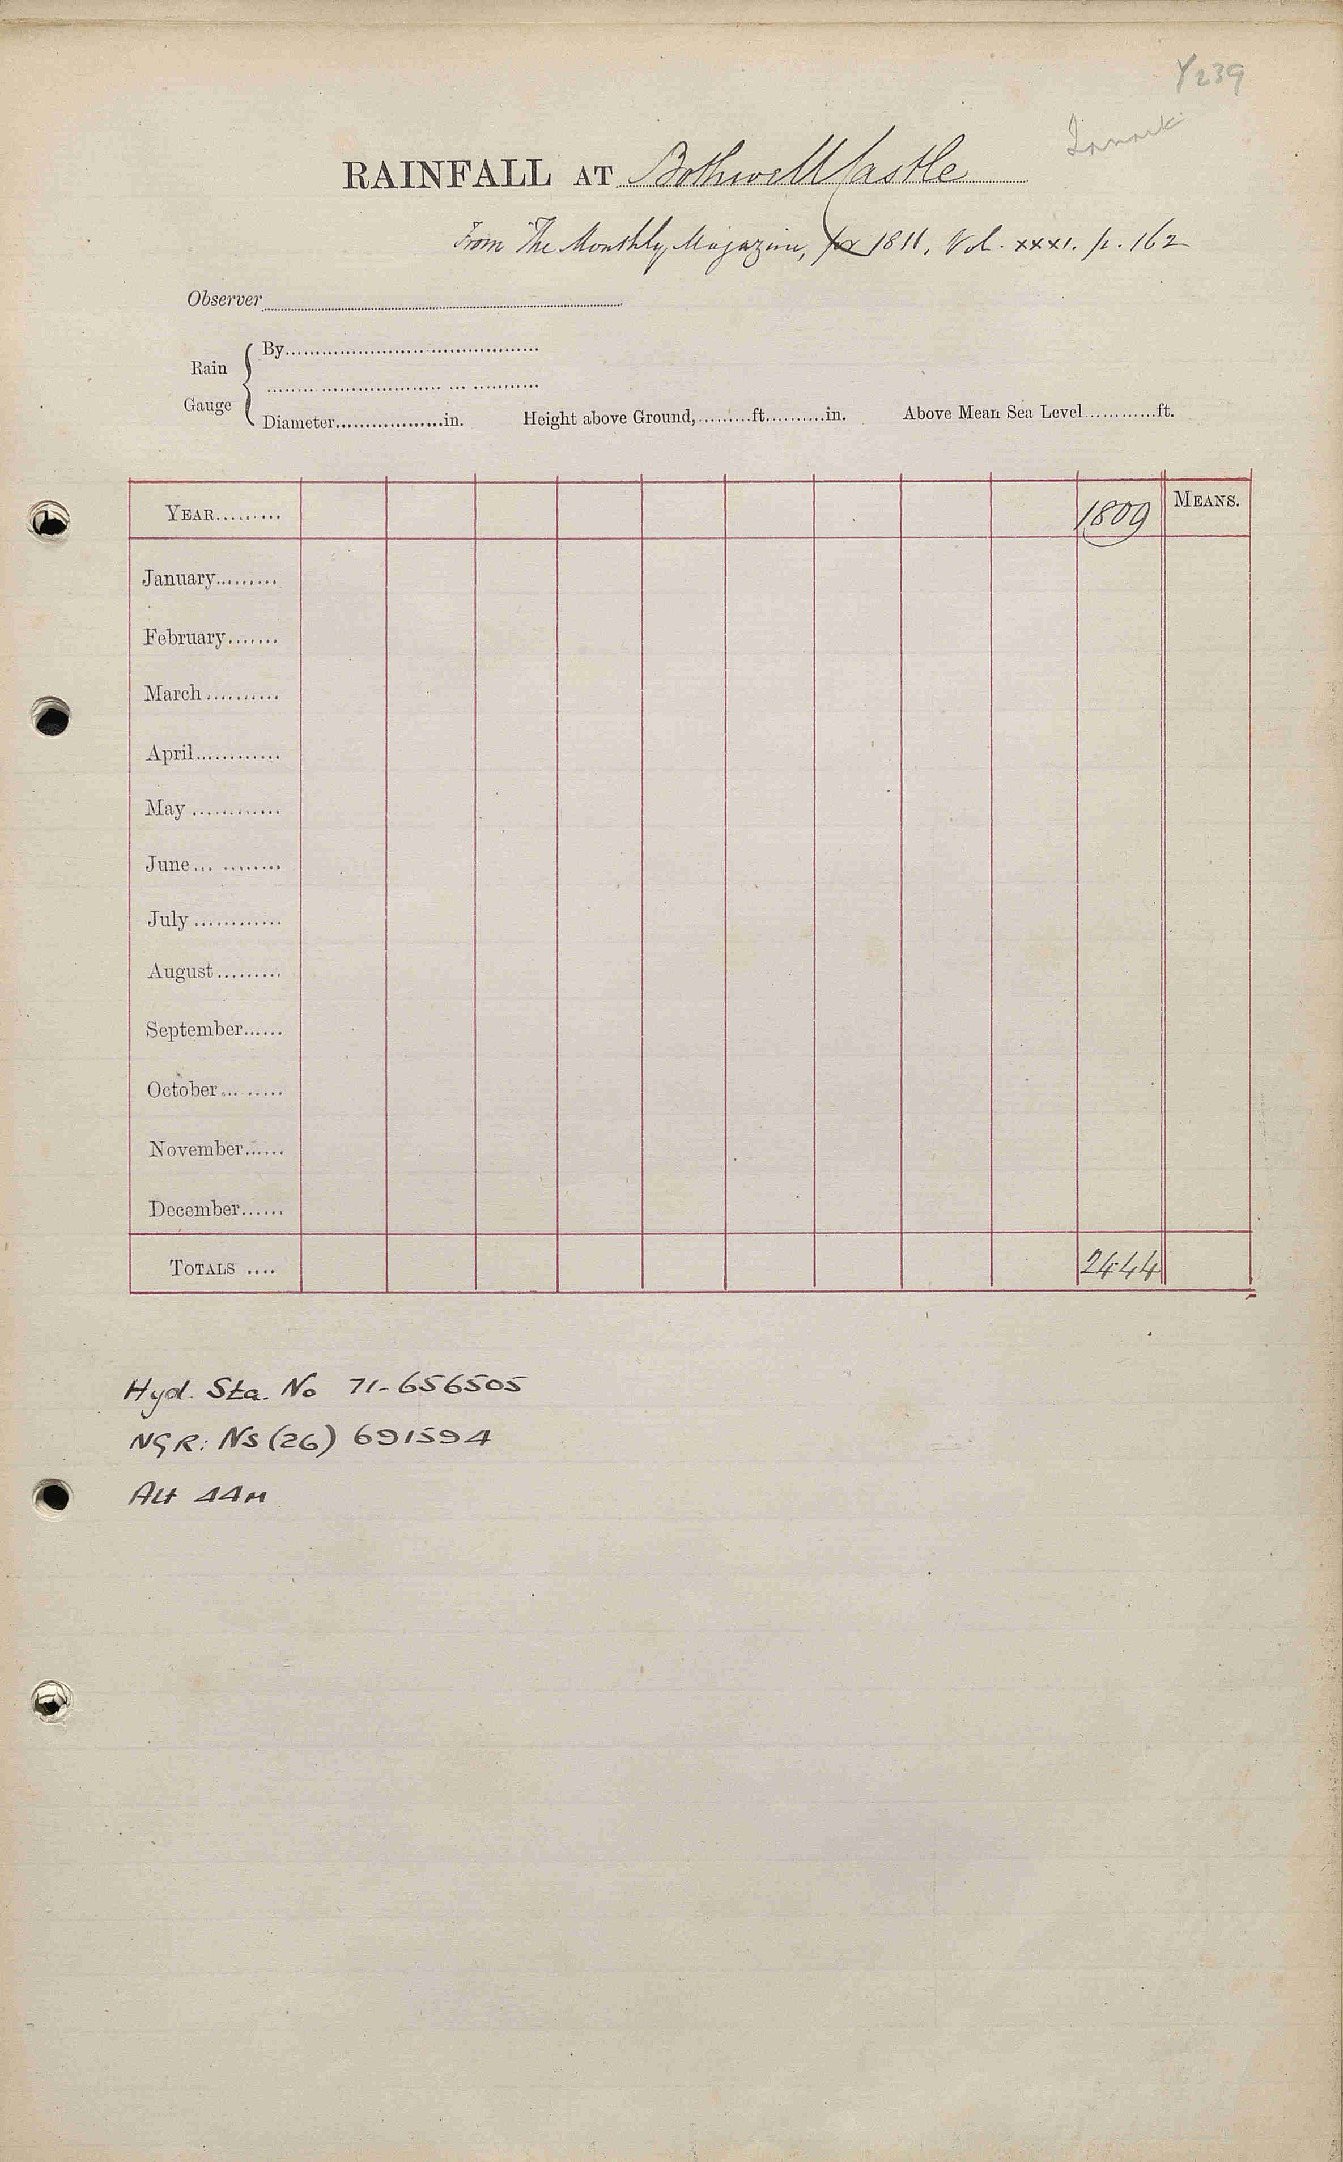 Y239
Lanark
RAINFALL AT Bothwell Castle
From The Monthly Magazine, for 1811, Vol. xxxi. p. 162
Observer
Rain Gauge { By
Diameter in. Height above Ground, ft. in. Above Mean Sea Level ft.
YEAR 1809 MEANS.
January
February
March
April
May
June
July
August
September
October
November
December
TOTALS 24.44
Hyd. Sta. No 71-656505
NGR: NS (26) 691594
Alt 44M